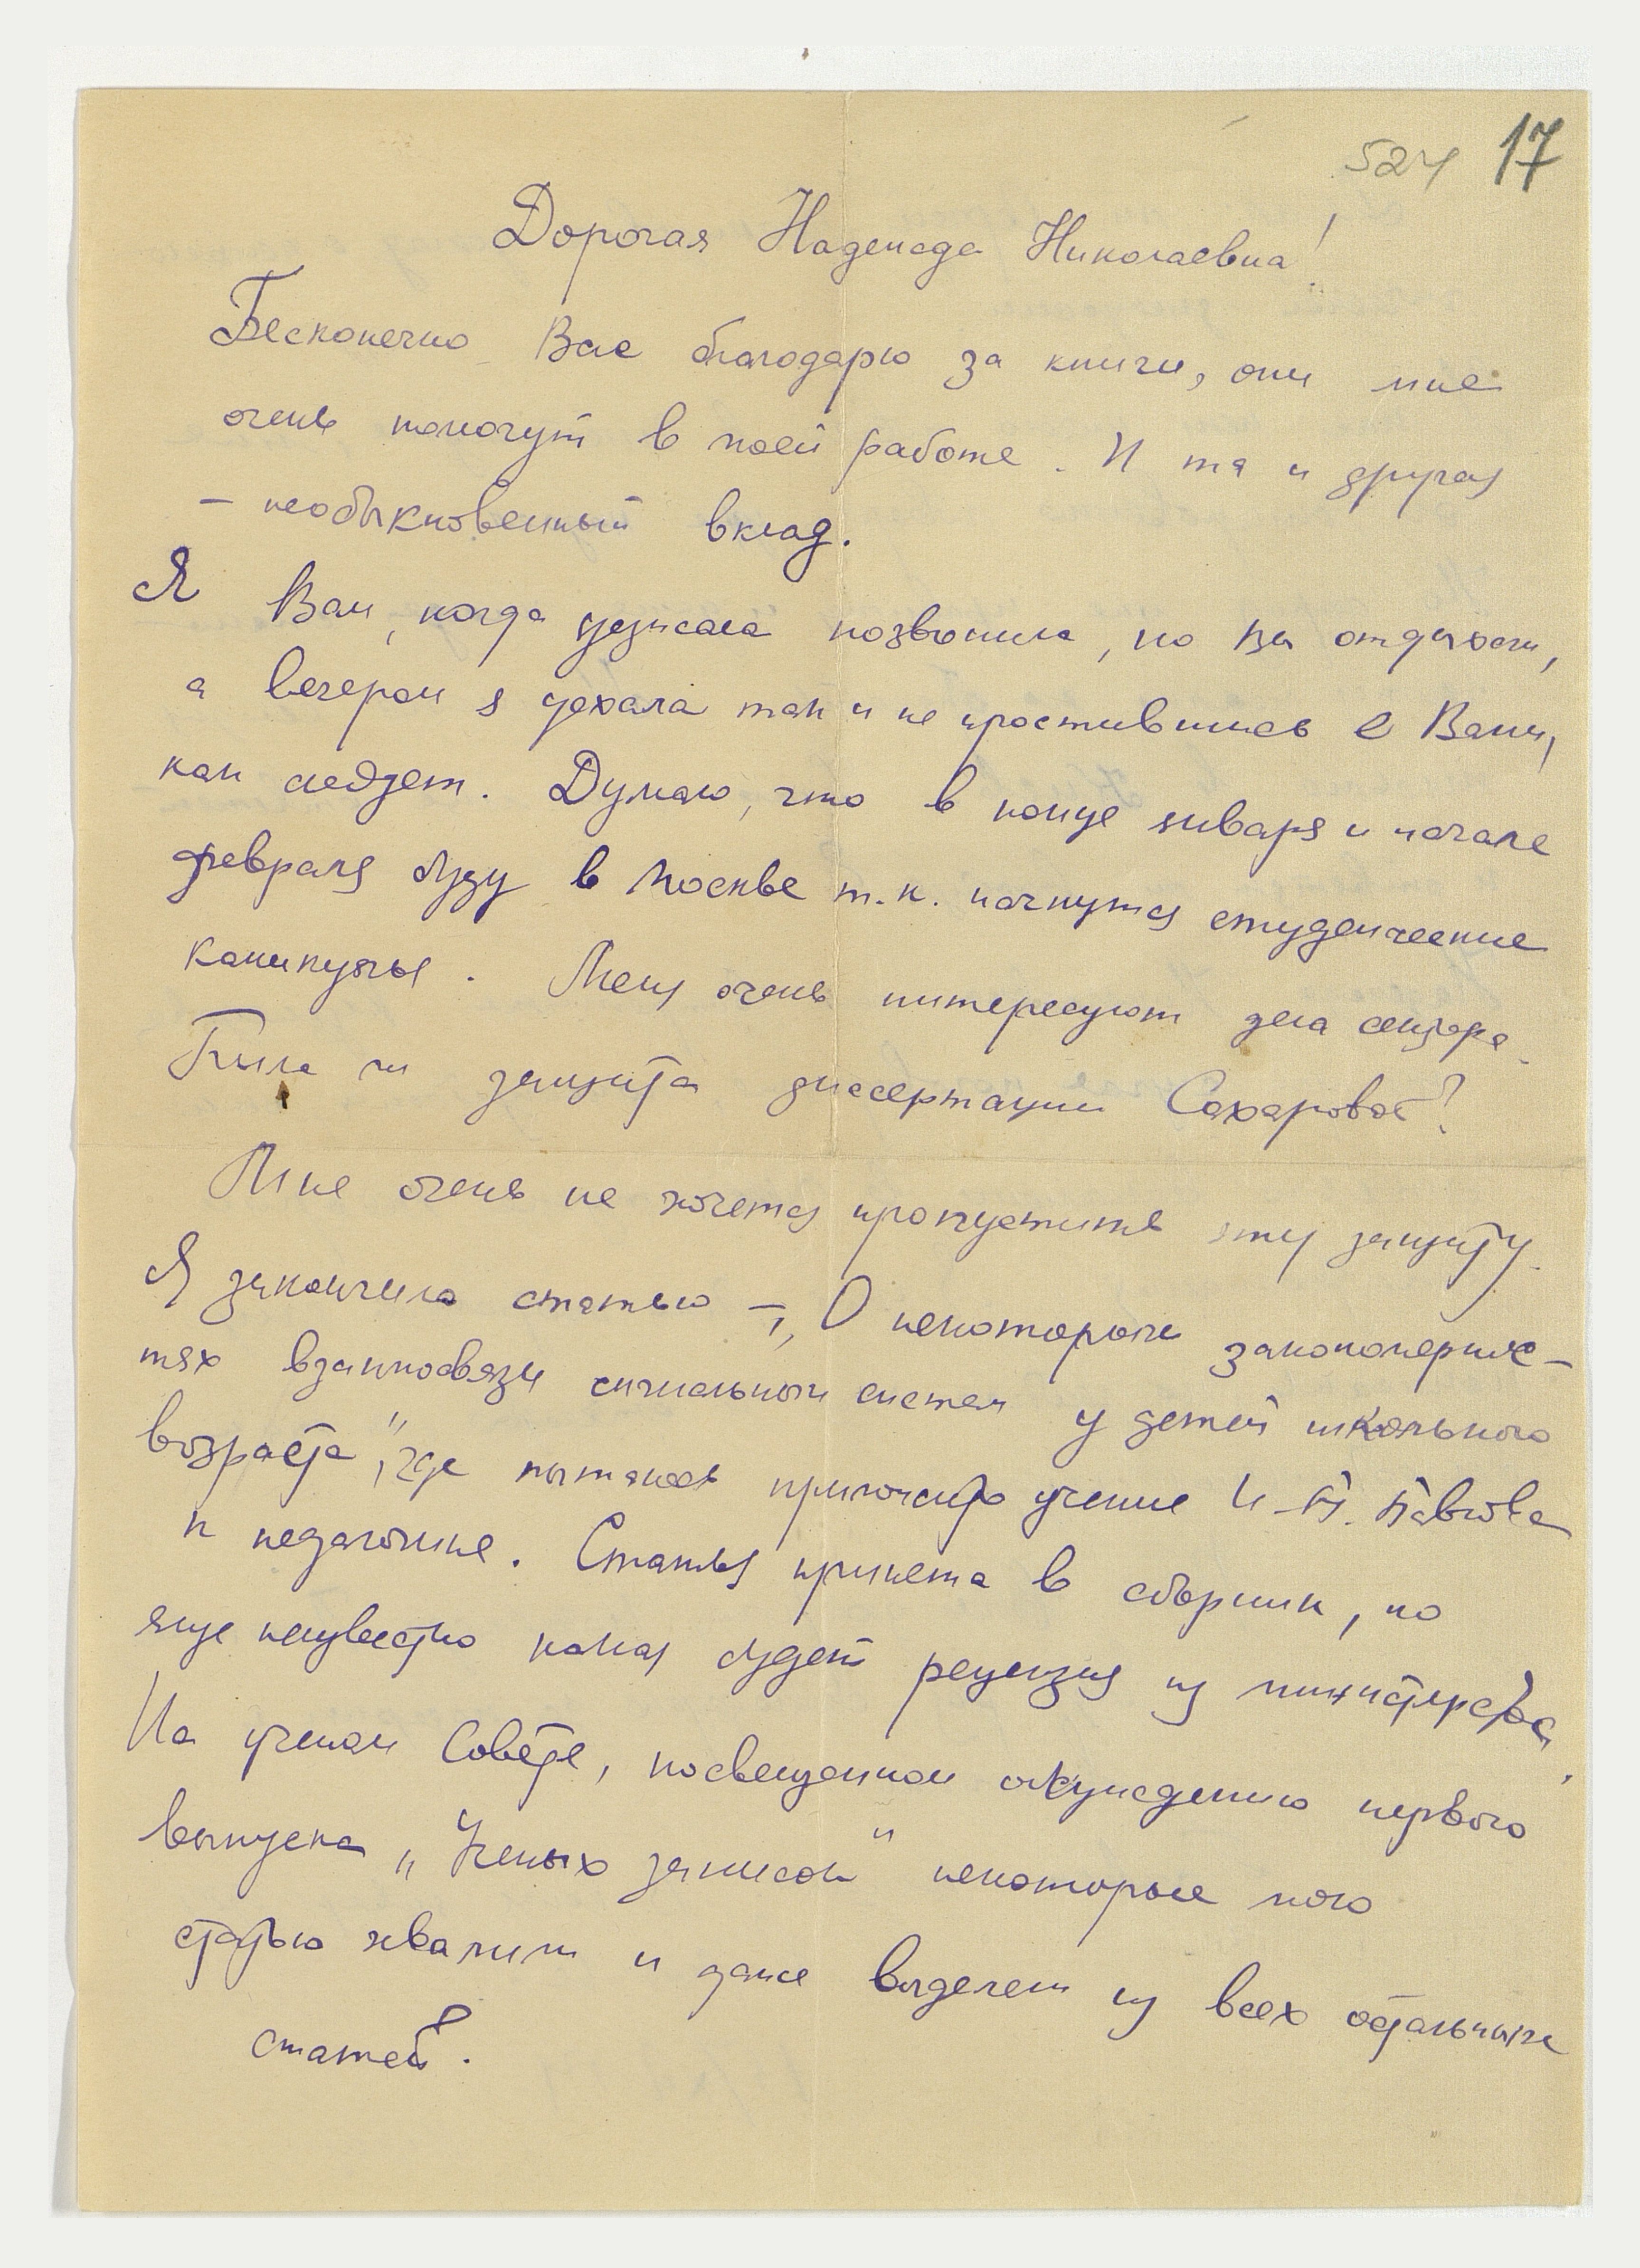 524 17
Дорогая Надежда Николаевна!
Бесконечно Вас благодарю за книги, они мне
очень помогут в моей работе. И та и другая
– необыкновенный вклад.
Я Вам, когда уезжала позвонила, но Вы отдыхали,
а вечером я уехала так и не простившись с Вами,
как следует. Думаю, что в конце января и начале
февраля буду в Москве т.к. начнутся студенческие
каникулы. Меня очень интересуют дела сектора.
Была ли защита диссертации Сахаровой?
Мне очень не хочется пропустить эту защиту.
Я закончила статью – „О некоторых закономернос–
тях взаимосвязи сигнальных систем у детей школьного
возраста", где пытаюсь приложить учение И.П. Павлова
к педагогике. Статья принята в сборник, но
еще неизвестно какая будет рецензия из министерства.
На ученом Совете, посвященном обсуждению первого
выпуска „Ученых записок" некоторые мою
статью хвалили и даже выделяли из всех остальных
статей.